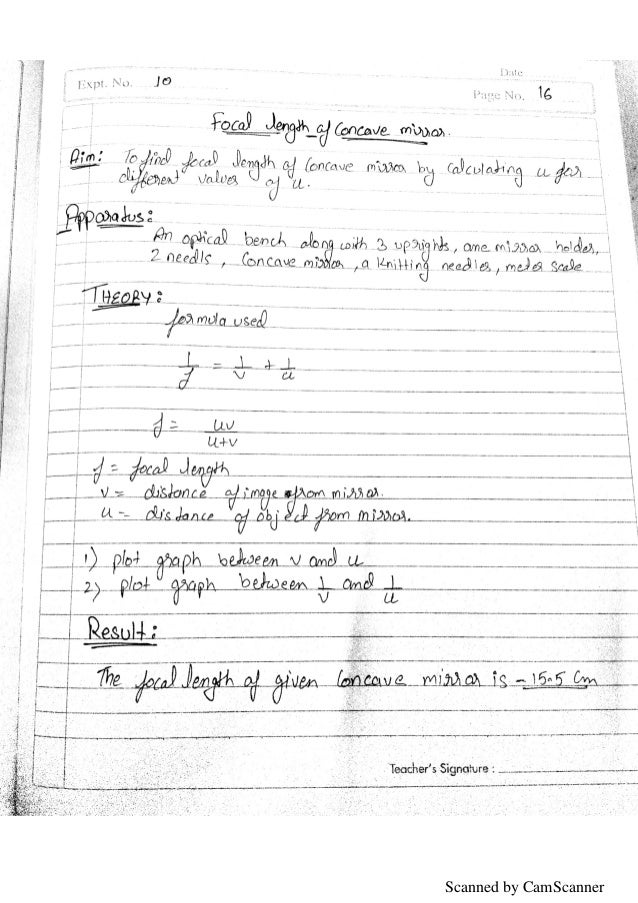 Date
Expt. No. 10
Page No. 16
Focal length of Concave mirror.
Aim: To find focal length of Concave mirror by calculating u for
different values of u.
Apparatus:
An optical bench along with 3 uprights, one mirror holder,
2 needls, Concave mirror, a Knitting needles, meter scale
THEORY:
formula used
1/f = 1/v + 1/u
f = uv/u+v
f = focal length
v = distance of image from mirror.
u = distance of object from mirror.
1) plot graph between v and u
2) plot graph between 1/v and 1/u
Result:
The focal length of given Concave mirror is - 15.5 Cm
Teacher's Signature :
Scanned by CamScanner